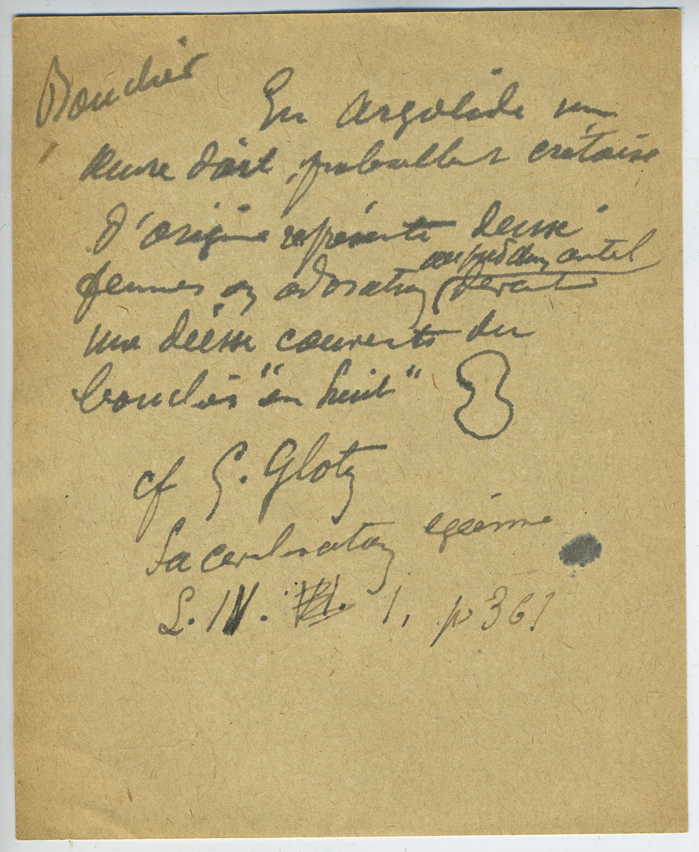 Bouclier
En Argolide une
œuvre d'art, probablemt crétoise
d'origine représente deux
femmes en adoration devant
auprès d'un autel
une déesse couverte du
bouclier "en huit"
cf G. Glotz
La civilisation égéenne
L. IV. 1, p 361